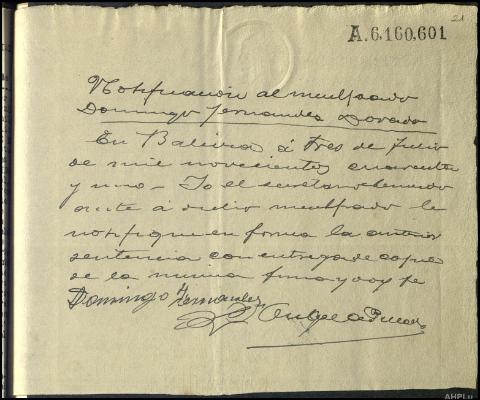 21
A.6,160,601
Notificación al inculpado
Domingo Fernandez Dorado
En Baleira á Tres de Julio
de mil novecientos cuarenta
y uno - Yo el
ante á dicho inculpado le
notifique en forma la anterior
sentencia con entrega de copia
de la misma firma y doy fe
Domingo Fernandez
Angel
AHPLu